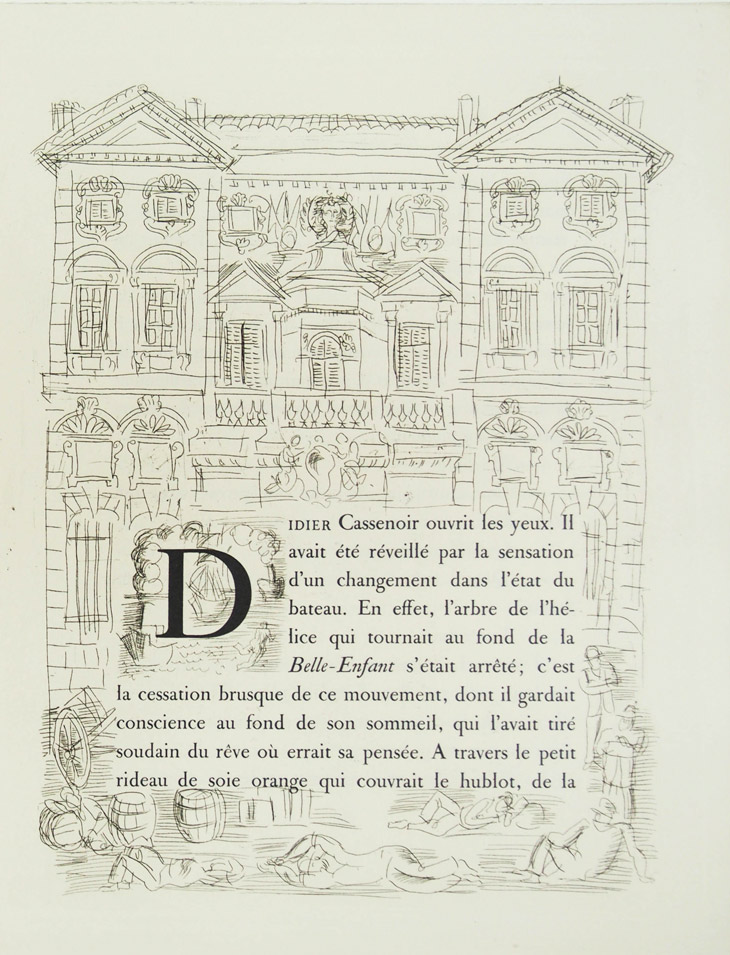 DIDIER Cassenoir ouvrit les yeux. Il
avait été réveillé par la sensation
d'un changement dans l'état du
bateau. En effet, l'arbre de l'hé-
lice qui tournait au fond de la
Belle-Enfant s'était arrêté; c'est
la cessation brusque de ce mouvement, dont il gardait
conscience au fond de son sommeil, qui l'avait tiré
soudain du rêve où errait sa pensée. A travers le petit
rideau de soie orange qui couvrait le hublot, de la